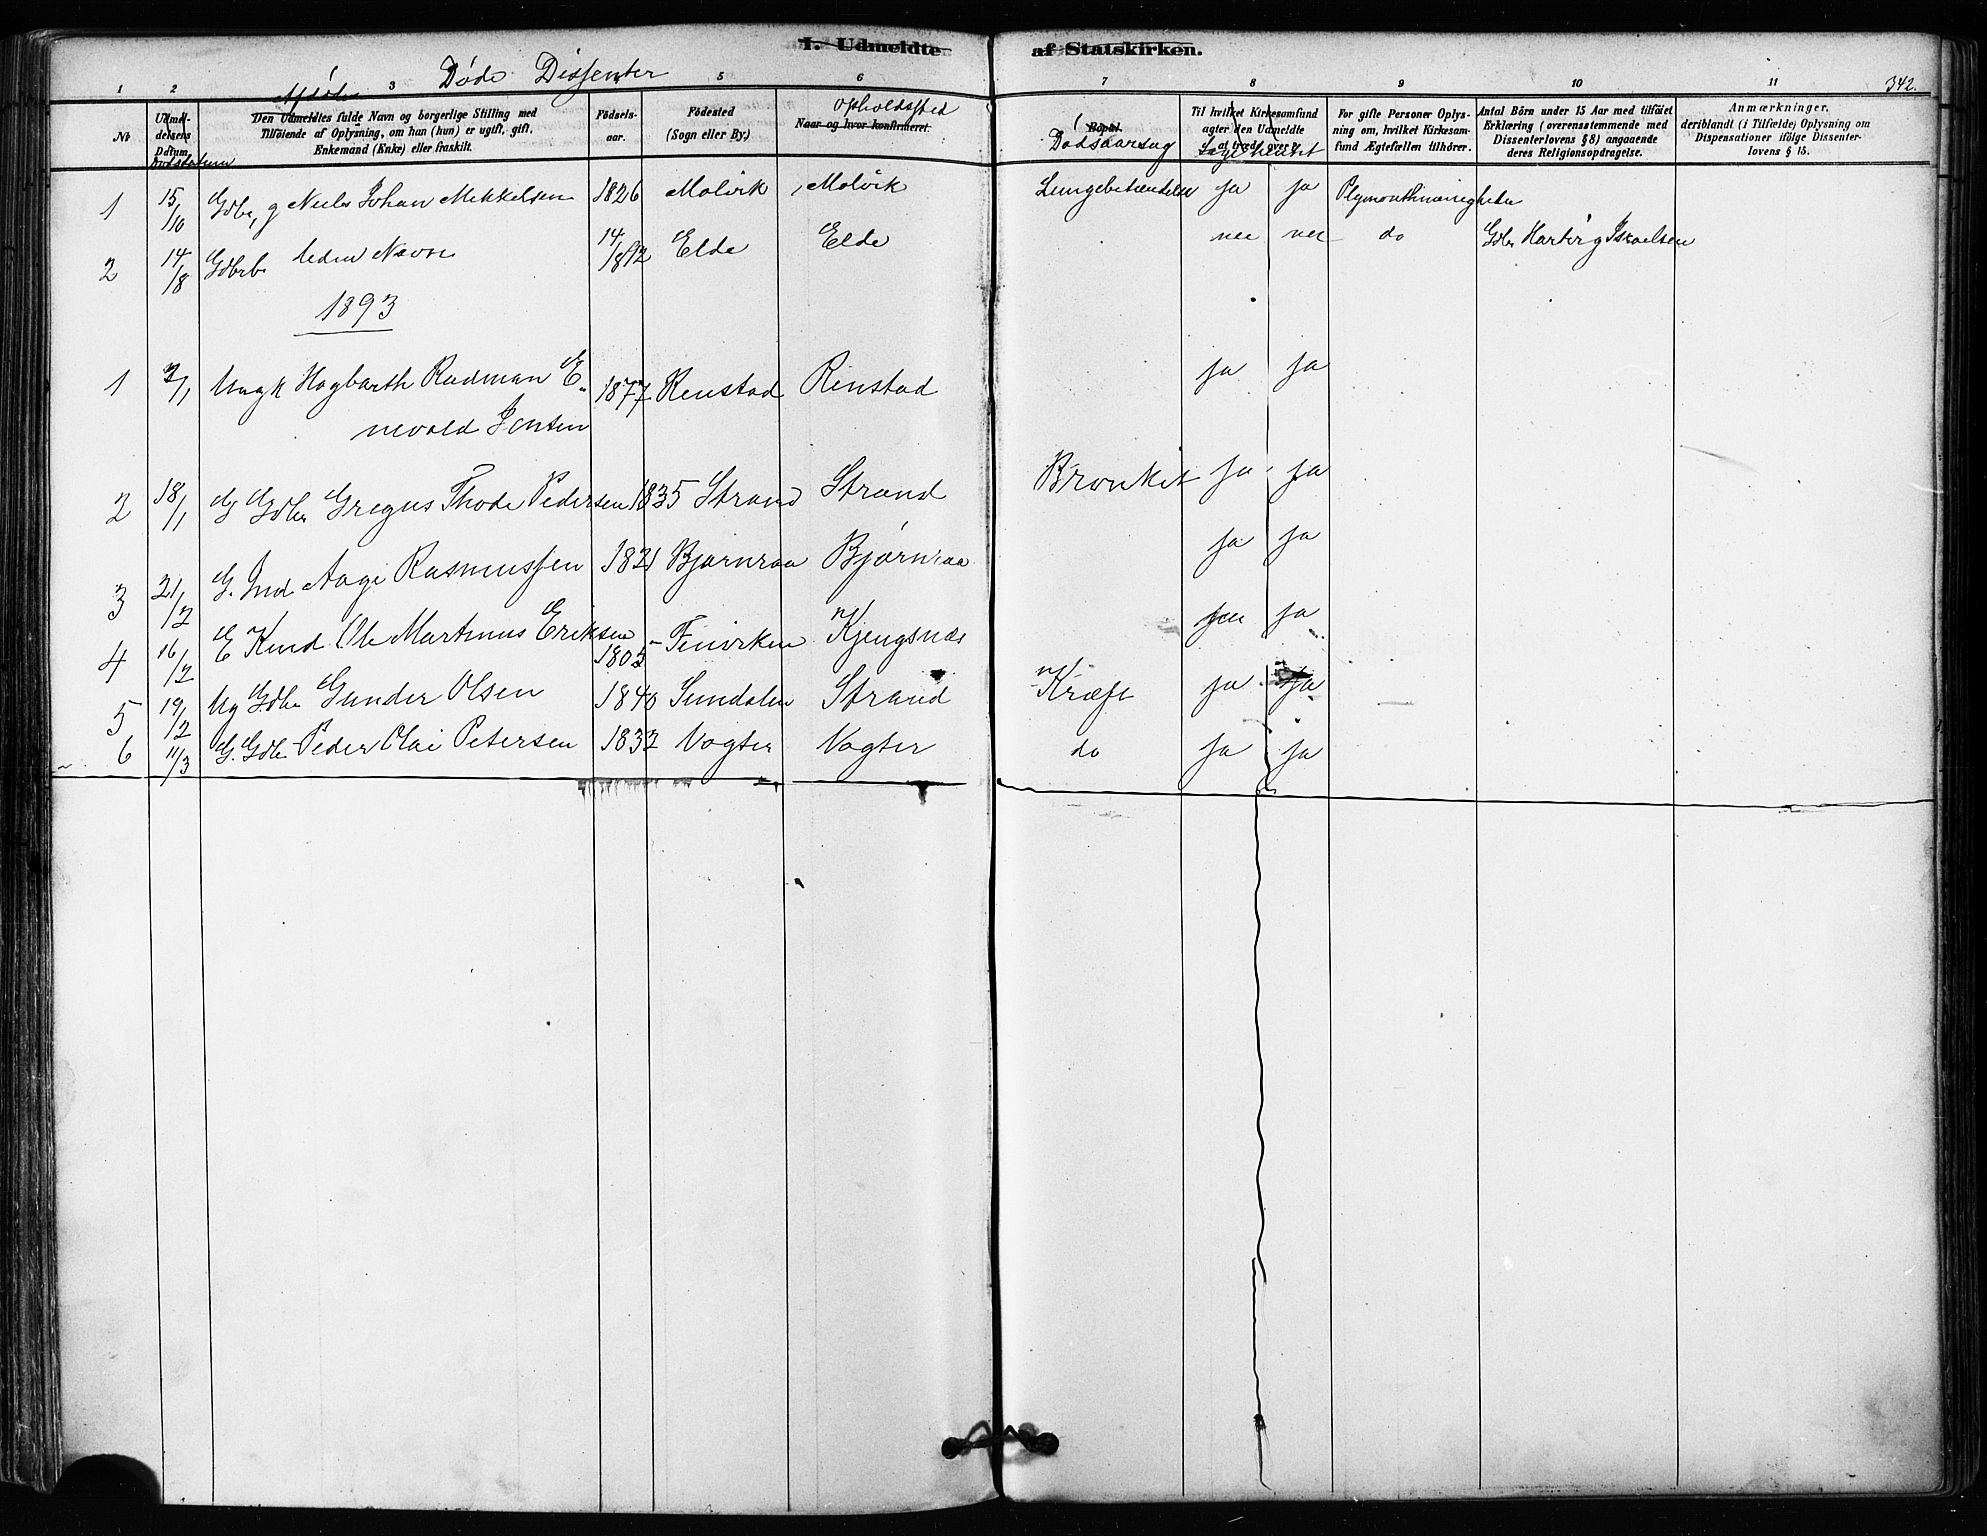 I. Udmeldte af Statskirken.
Døde Dissenter
342.
1 2 3 5 6 7 8 9 10 11
No
Udmeldelsens Datum.
Dødsdatum
Afdøde
Den Udmeldtes fulde Navn og borgerlige Stilling med
Tilføiende af Oplysning, om han (hun) er ugift, gift,
Enkemand (Enke) eller fraskilt.
Fødselsaar.
Fødested
(Sogn eller By.)
Opholdssted
Naar og hvor konfirmeret.
Bopæl
Dødsaarsag
Til hvilket Kirkesamfund
agter den Udmeldte
at træde over?
For gifte Personer Oplysning om, hvilket Kirkesamfund Ægtefællen tilhörer.
Antal Börn under 15 Aar med tilföiet
Erklæring (overensstemmende med
Dissenterlovens § 8) angaaende
deres Religionsopdragelse.
Anmærkninger,
deriblandt (i Tilfælde) Oplysning om
Dispensationer ifölge Dissenterlovens § 15.
1 15/10 Gdbr, g Niels Johan Mekkelsen 1826 Molvik Molvik Lungebetændelse ja ja Plymouthmenigheden
2 14/8 Gdbrb uden Navn 14/8 92 Elde Elde nei nei do Gdbr Hartvig Israelsen
1893
1 7/1 Ungk Hagbarth Rudman E- 1877 Renstad Renstad ja ja
nevold Jensen
2 18/1 G Gdbr Gregus Thode Pedersen 1835 Strand Strand Bronkit ja ja
3 21/2 G. Ind Aage Rasmussen 1821 Bjørnraa Bjørnraa ja ja
4 16/2 E Knud Ole Martinus Eriksen 1805 Kjengsnæs ja
5 19/2 Ug Gdbr Gunder Olsen 1840 Sundalen Strand Kræft ja ja
6 11/3 G. Gdbr Peder Olai Petersen 1832 Vogter Vogter do ja ja